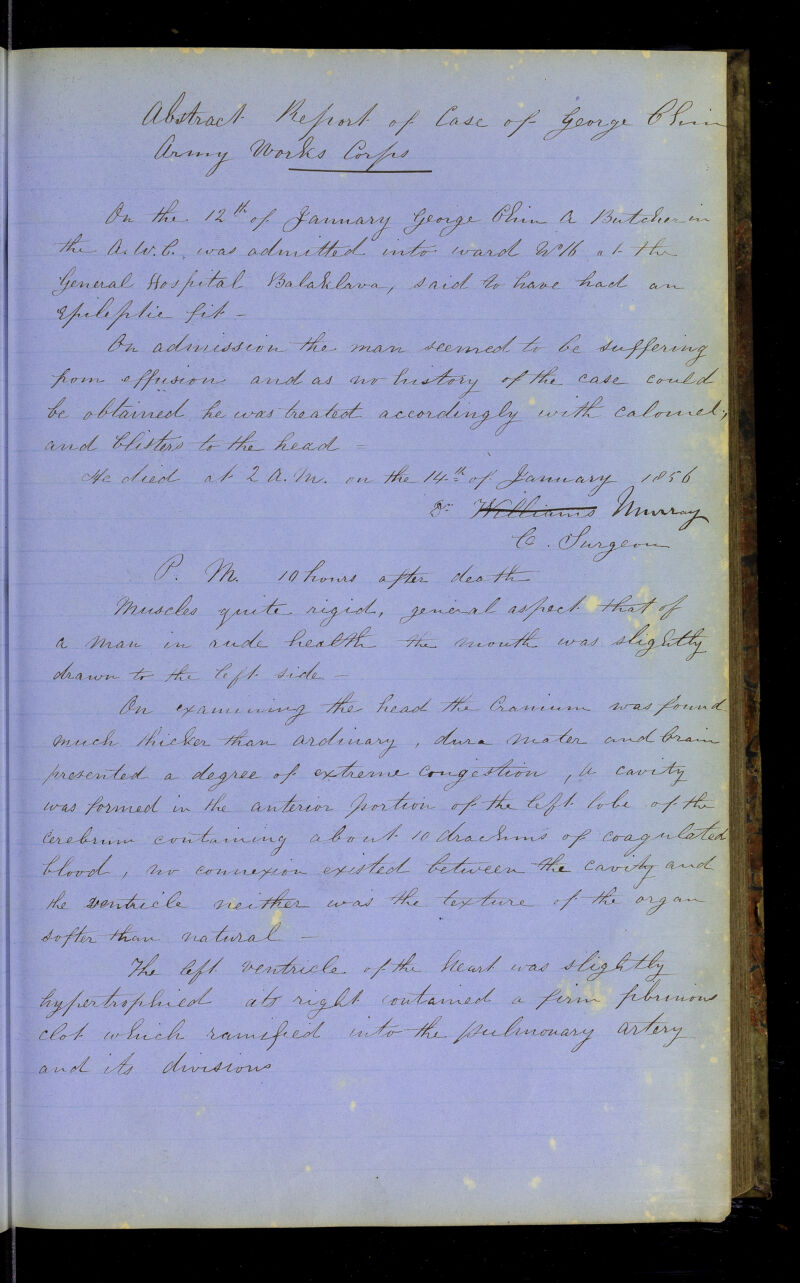 Abstract Report of Case of George Chin
Army Works Corps
On the 12th of January George Chin A Butcher in
the A.W.C. was admitted into ward No 16 at the
General Hospital Balaklava, said to have had an
Epileptic fit -
On admission the man seemed to be suffering
from effusion and as no history of the case could
be obtained he was treated accordingly with calomel,
and blisters to the head =
He died at 2 A.M. on the 14th of January 1856
Dr Williams Murray
C. Surgeon
P. M. 10 hours after death
Muscles quite rigid, general aspect that of
a man in rude health the mouth was slightly
drawn to the left side -
On examining the head the Cranium was found
much thicker than ordinary, dura mater and brain
presented a degree of extreme congestion, a cavity
was formed in the anterior portion of the left lobe of the
Cerebrum containing about 10 drachms of coagulated
blood, no connexion existed between the cavity and
the ventricle neither was the texture of the organ
softer than natural -
The left ventricle of the heart was slightly
hypertrophied its right contained a firm fibrinous
clot which ramified into the pulmonary artery
and its divisions